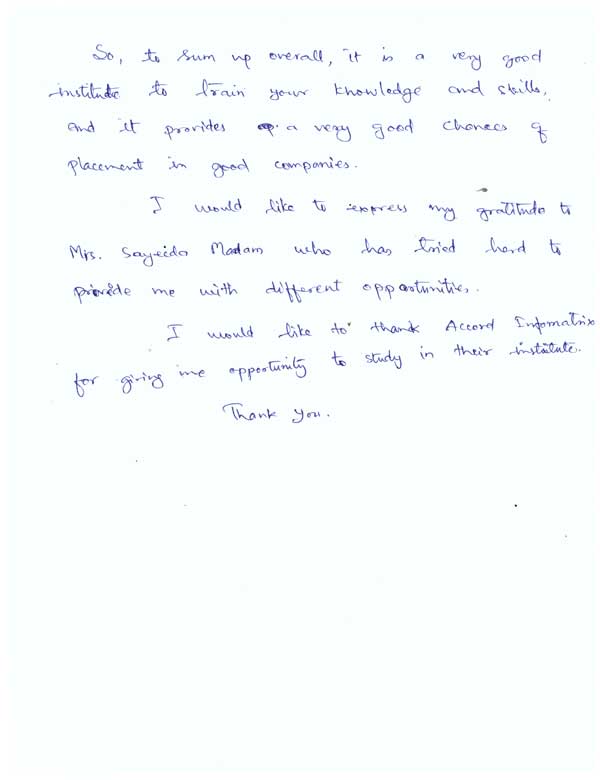 So, to sum up overall, it is a very good
institute to train your knowledge and skills,
and it provides a very good chances of
placement in good companies.
I would like to express my gratitude to
Mrs. Sayeida Madam who has tried hard to
provide me with different opportunities.
I would like to thank Accord Infomatrix
for giving me opportunity to study in their institute.
Thank You.